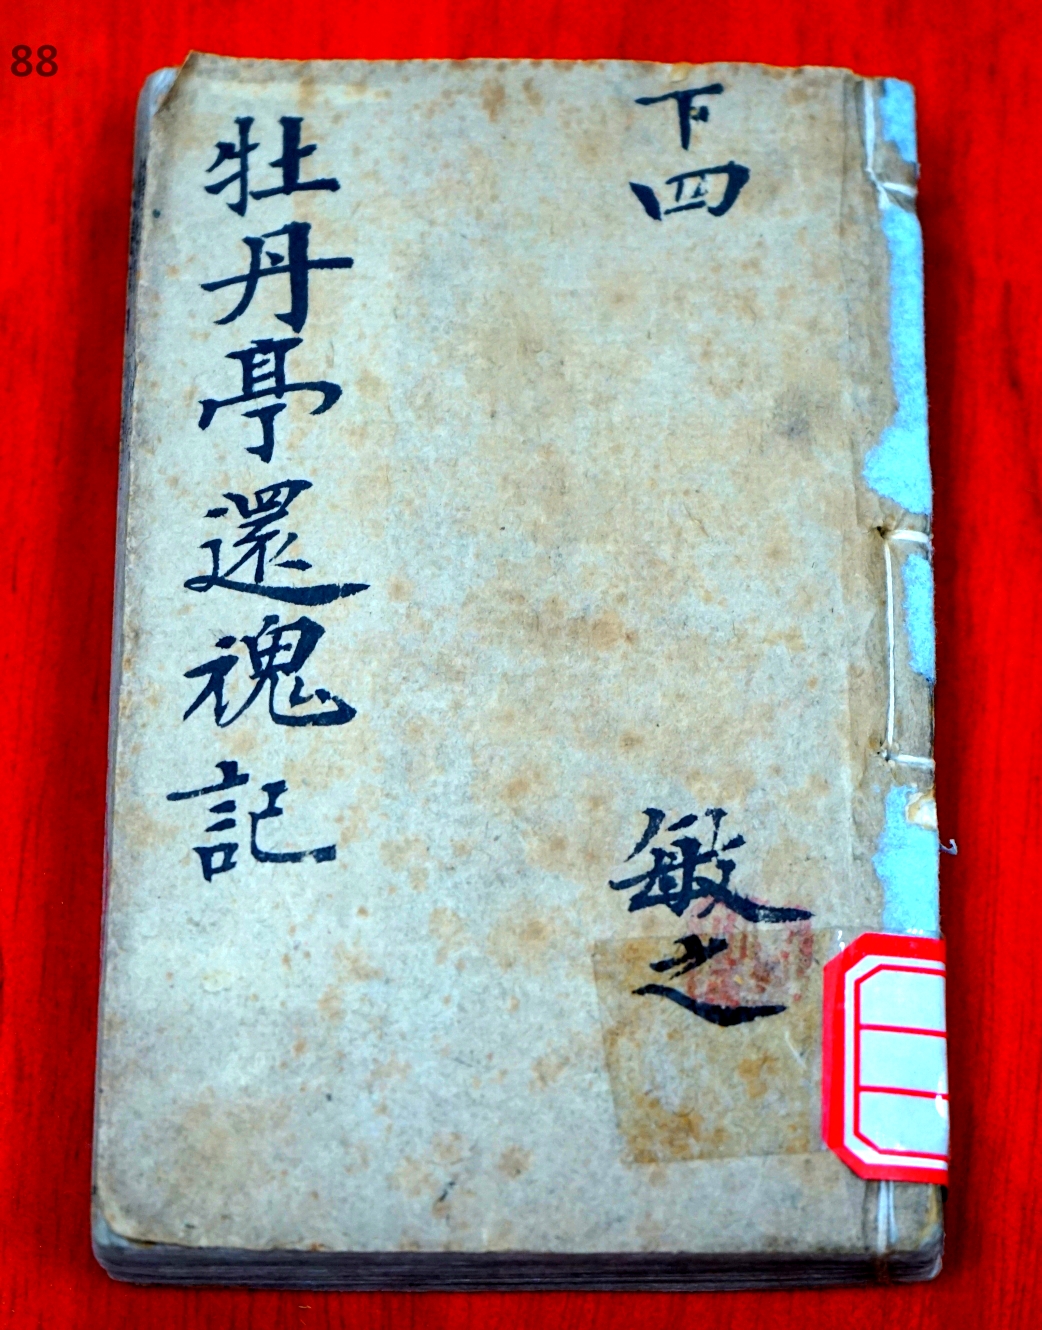 88
下四
敏之
牡丹亭還魂記